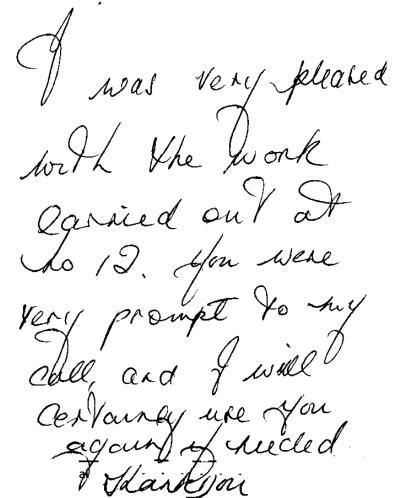 I was very pleased
with the work
carried out at
no 12. You were
very prompt to my
call, and I will
certainly use you
again if needed
Thankyou